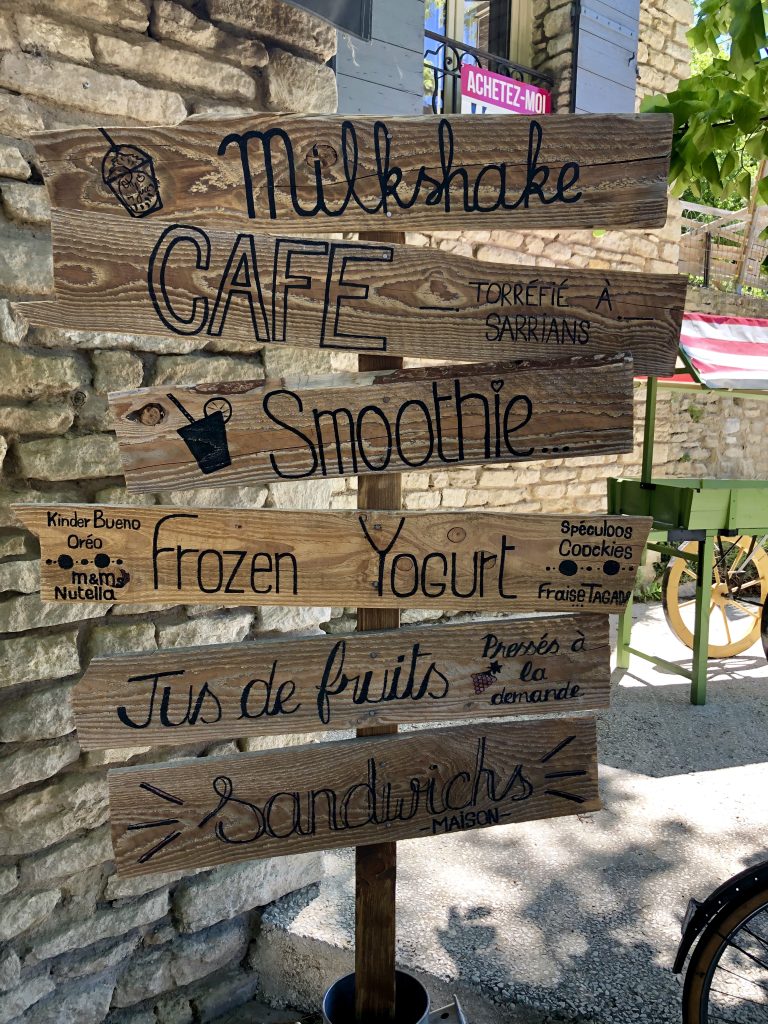 ACHETEZ-MOI
Milkshake
CAFE
TORRÉFIÉ À
SARRIANS
Smoothie...
Kinder Bueno
Oréo
m&ms
Nutella
Frozen Yogurt
Spéculoos
Coockies
Fraise TAGADA
Jus de fruits
Pressés à
la
demande
Sandwichs
-MAISON-